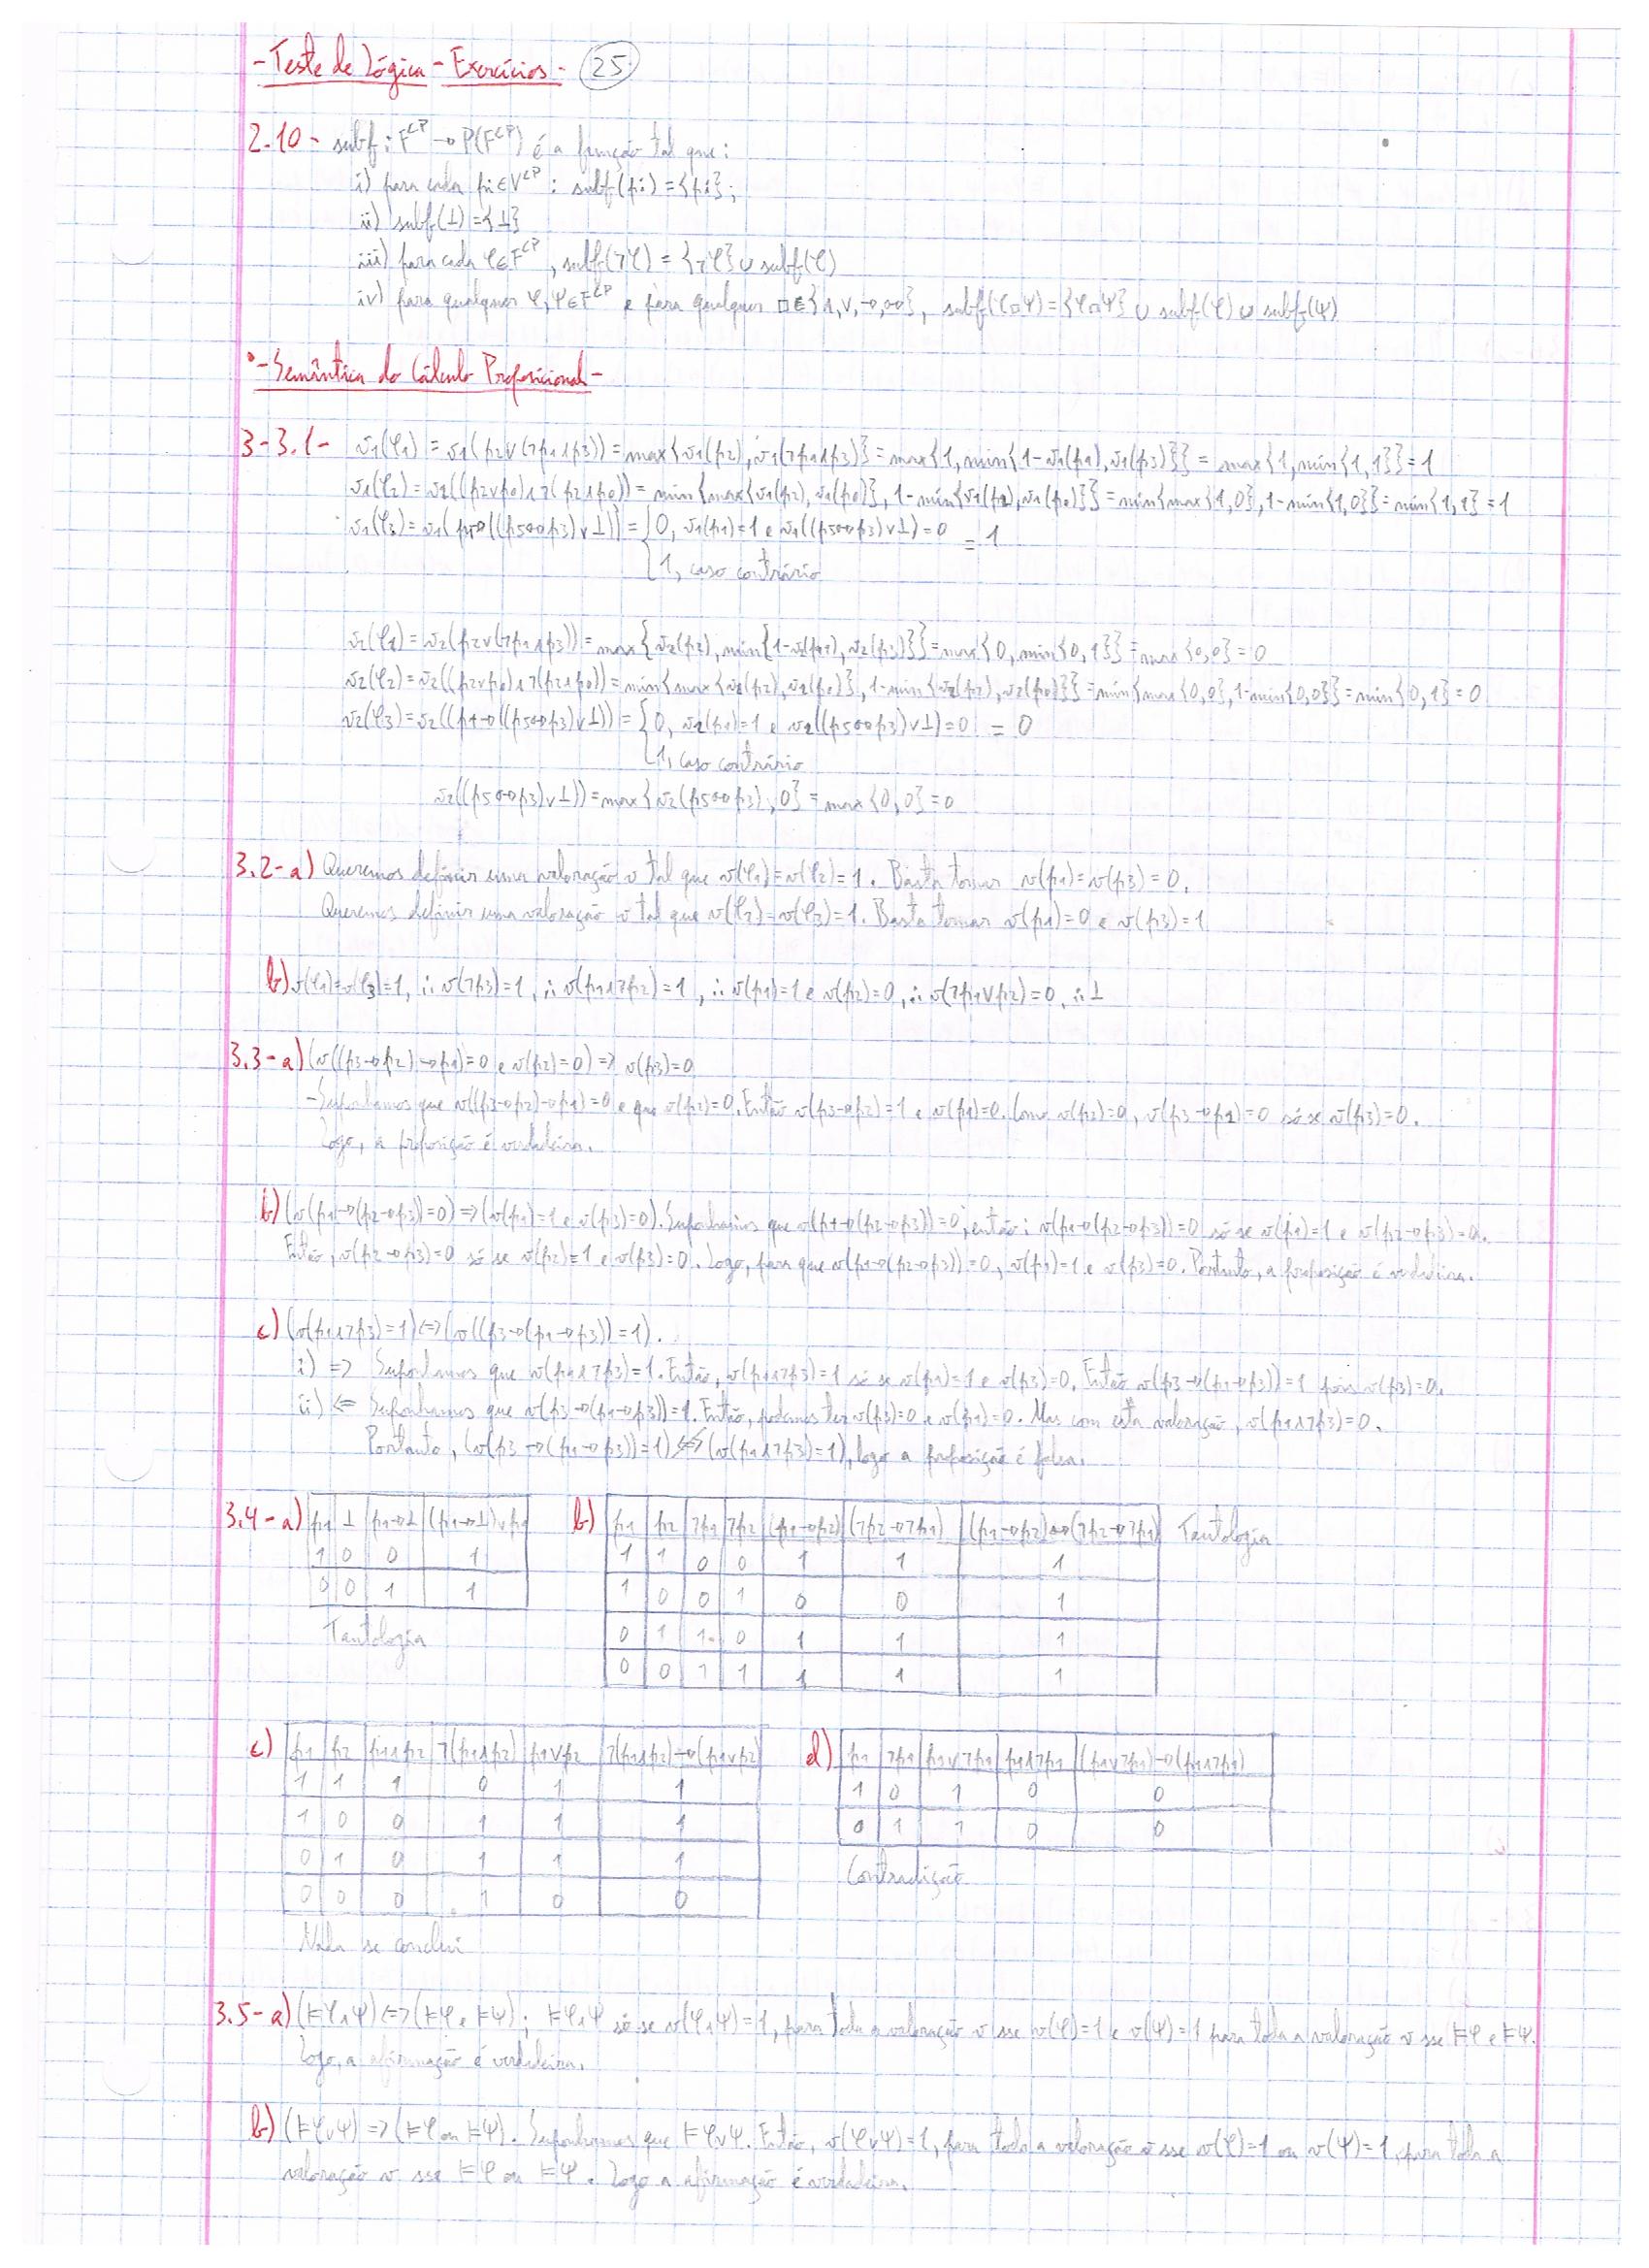 - Teste de Lógica - Exercícios - 25
2.10 - subf: F^CP → P(F^CP) é a função tal que:
i) para cada pi ∈ V^CP : subf(pi) = {pi};
ii) subf(⊥) = {⊥}
iii) para cada φ ∈ F^CP, subf(¬φ) = {¬φ} ∪ subf(φ)
iv) para quaisquer φ, ψ ∈ F^CP e para qualquer □ ∈ {∧, ∨, →, ↔}, subf(φ□ψ) = {φ□ψ} ∪ subf(φ) ∪ subf(ψ)
- Semântica do Cálculo Proposicional -
3-3.1- v1(φ1) = v1(p2∨(¬p1∧p3)) = max{v1(p2), v1(¬p1∧p3)} = max{1, min{1-v1(p1), v1(p3)}} = max{1, min{1,1}} = 1
v1(φ2) = v1((p2∨p0)∧¬(p2∧p0)) = min{max{v1(p2), v1(p0)}, 1-min{v1(p2), v1(p0)}} = min{max{1,0}, 1-min{1,0}} = min{1,1} = 1
v1(φ3) = v1(p1→((p5↔p3)∨⊥)) = {0, v1(p1)=1 e v1((p5↔p3)∨⊥)=0 = 1
1, caso contrário
v2(φ1) = v2(p2∨(¬p1∧p3)) = max{v2(p2), min{1-v2(p1), v2(p3)}} = max{0, min{0,1}} = max{0,0} = 0
v2(φ2) = v2((p2∨p0)∧¬(p2∧p0)) = min{max{v2(p2), v2(p0)}, 1-min{v2(p2), v2(p0)}} = min{max{0,0}, 1-min{0,0}} = min{0,1} = 0
v2(φ3) = v2((p1→((p5↔p3)∨⊥)) = {0, v2(p1)=1 e v2((p5↔p3)∨⊥)=0 = 0
1, caso contrário
v2((p5↔p3)∨⊥)) = max{v2(p5↔p3), 0} = max{0,0} = 0
3.2-a) Queremos definir uma valoração v tal que v(φ1)=v(φ2)=1. Basta tomar v(p1)=v(p3)=0.
Queremos definir uma valoração v tal que v(φ2)=v(φ3)=1. Basta tomar v(p1)=0 e v(p3)=1
b) v(φ1)=v(φ3)=1, ∴ v(¬p3)=1, ∴ v(p1∧¬p2)=1, ∴ v(p1)=1 e v(p2)=0, ∴ v(¬p1∨p2)=0, ∴ ⊥
3.3-a) (v((p3→p2)→p1)=0 e v(p2)=0) ⇒ v(p3)=0
- Suponhamos que v((p3→p2)→p1)=0 e que v(p2)=0. Então v(p3→p2)=1 e v(p1)=0. Como v(p2)=0, v(p3→p2)=0 só se v(p3)=0.
Logo, a proposição é verdadeira.
b) (v(p1→(p2→p3))=0) ⇒ (v(p1)=1 e v(p3)=0). Suponhamos que v(p1→(p2→p3))=0, então: v(p1→(p2→p3))=0 só se v(p1)=1 e v(p2→p3)=0.
Então, v(p2→p3)=0 só se v(p2)=1 e v(p3)=0. Logo, para que v(p1→(p2→p3))=0, v(p1)=1 e v(p3)=0. Portanto, a proposição é verdadeira.
c) (v(p1∧¬p3)=1) ⇔ (v((p3→(p1→p3))=1).
i) ⇒ Suponhamos que v(p1∧¬p3)=1. Então, v(p1∧¬p3)=1 só se v(p1)=1 e v(p3)=0. Então v(p3→(p1→p3))=1 pois v(p3)=0.
ii) ⇐ Suponhamos que v(p3→(p1→p3))=1. Então, podemos ter v(p3)=0 e v(p1)=0. Mas com esta valoração, v(p1∧¬p3)=0.
Portanto, (v(p3→(p1→p3))=1) ⇎ (v(p1∧¬p3)=1), logo a proposição é falsa.
3.4-a) p1 ⊥ p1→⊥ (p1→⊥)∨p1
1 0 0 1
0 0 1 1
Tautologia
b) p1 p2 ¬p1 ¬p2 (p1→p2) (¬p2→¬p1) (p1→p2)↔(¬p2→¬p1) Tautologia
1 1 0 0 1 1 1
1 0 0 1 0 0 1
0 1 1 0 1 1 1
0 0 1 1 1 1 1
c) p1 p2 p1∧p2 ¬(p1∧p2) p1∨p2 ¬(p1∧p2)→(p1∨p2)
1 1 1 0 1 1
1 0 0 1 1 1
0 1 0 1 1 1
0 0 0 1 0 0
Nada se conclui
d) p1 ¬p1 p1∨¬p1 p1∧¬p1 (p1∨¬p1)→(p1∧¬p1)
1 0 1 0 0
0 1 1 0 0
Contradição
3.5-a) (⊨φ∧ψ) ⇔ (⊨φ e ⊨ψ); ⊨φ∧ψ só se v(φ∧ψ)=1, para toda a valoração v sse v(φ)=1 e v(ψ)=1 para toda a valoração v sse ⊨φ e ⊨ψ.
Logo, a afirmação é verdadeira.
b) (⊨φ∨ψ) ⇒ (⊨φ ou ⊨ψ). Suponhamos que ⊨φ∨ψ. Então, v(φ∨ψ)=1, para toda a valoração v sse v(φ)=1 ou v(ψ)=1, para toda a
valoração v sse ⊨φ ou ⊨ψ. Logo a afirmação é verdadeira.